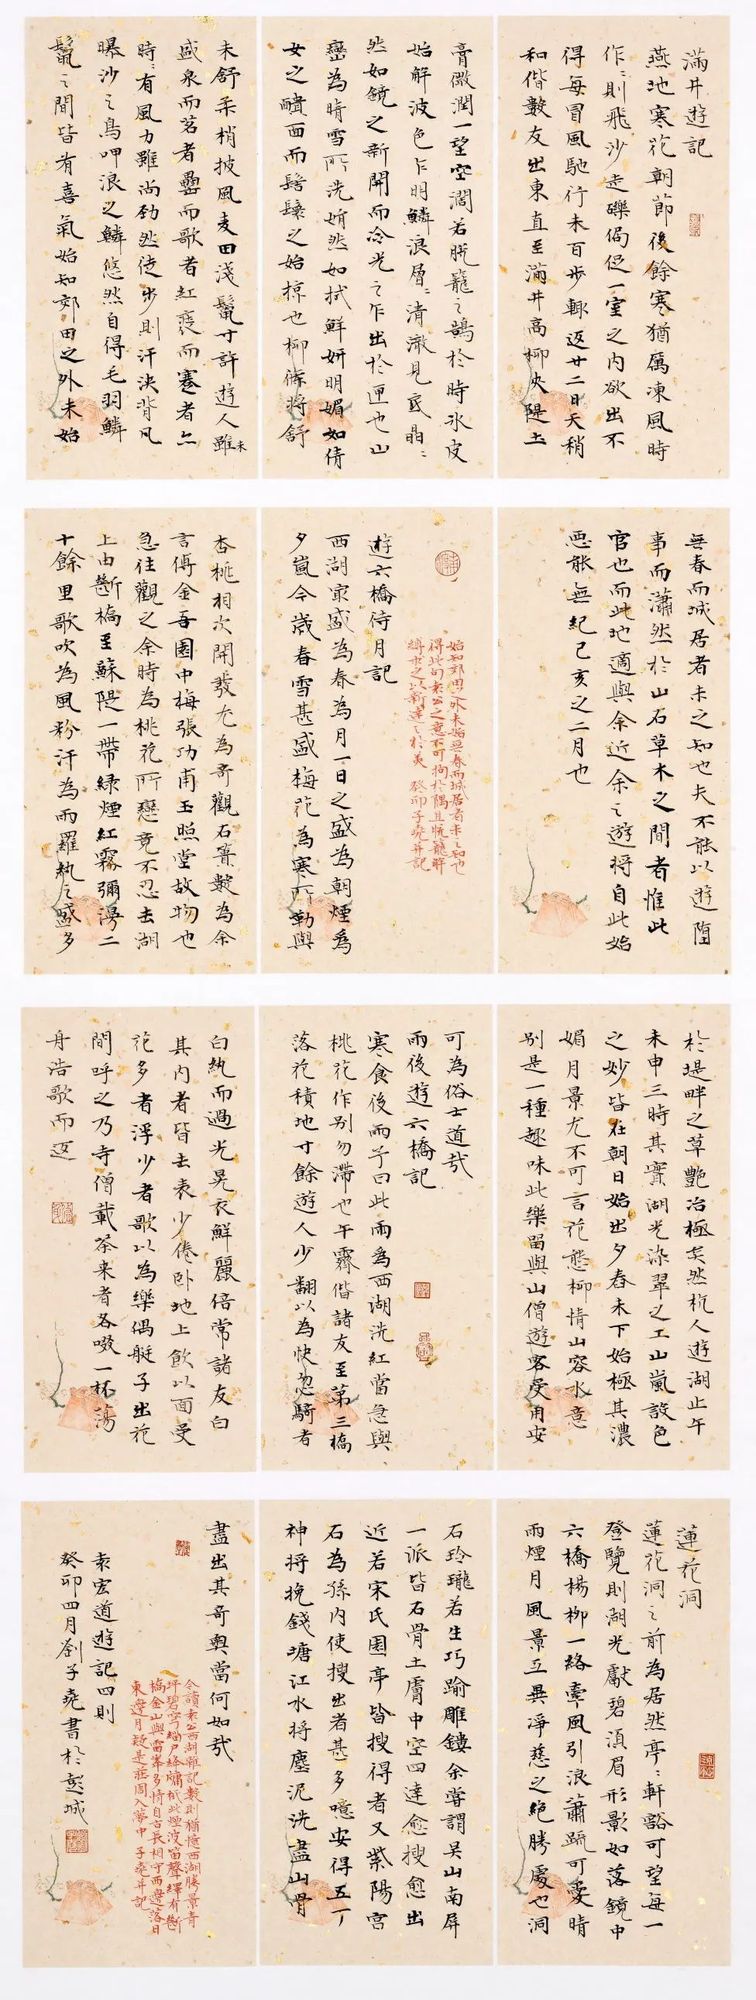 滿井遊記
燕地寒花朝節後餘寒猶厲凍風時
作〻則飛沙走礫侷促一室之內欲出不
得每冒風馳行未百步輒返廿二日天稍
和偕數友出東直至滿井高柳夾隄土
膏微潤一望空濶若脫籠之鵠於時冰皮
始解波色乍明鱗浪層〻清澈見底晶〻
然如鏡之新開而冷光之乍出於匣也山
巒為晴雪所洗娟然如拭鮮妍明媚如倩
女之靧面而髻鬟之始掠也柳條將舒
未舒柔梢披風麦田淺鬣寸許遊人雖
未
盛泉而茗者罍而歌者紅裝而蹇者亦
時〻有風力雖尚勁然徒步則汗浹背凡
曝沙之鳥呷浪之鱗悠然自得毛羽鱗
鬣之間皆有喜氣始知郊田之外未始
無春而城居者未之知也夫不能以遊墮
事而瀟然於山石草木之間者惟此
官也而此地適與余近余之遊將自此始
惡能無紀己亥之二月也
始知郊田之外未始無春而城居者未之知也
癸卯子堯并記
遊六橋待月記
西湖最盛為春為月一日之盛為朝煙為
夕嵐今歲春雪甚盛梅花為寒所勒與
杏桃相次開發尤為奇觀石簣數為余
言傅金吾園中梅張功甫玉照堂故物也
急往觀之余時為桃花所戀竟不忍去湖
上由斷橋至蘇隄一帶綠煙紅霧彌漫二
十餘里歌吹為風粉汗為雨羅紈之盛多
於堤畔之草艷冶極矣然杭人遊湖止午
未申三時其實湖光染翠之工山嵐設色
之妙皆在朝日始出夕舂未下始極其濃
媚月景尤不可言花態柳情山容水意
別是一種趣味此樂留與山僧遊客受用安
可為俗士道哉
雨後遊六橋記
寒食後雨予曰此雨為西湖洗紅當急與
桃花作別勿滯也午霽偕諸友至第三橋
落花積地寸餘遊人少翻以為快忽騎者
白紈而過光晃衣鮮麗倍常諸友白
其內者皆去表少倦卧地上飲以面受
花多者浮少者歌以為樂偶艇子出花
間呼之乃寺僧載茶来者各啜一杯蕩
舟浩歌而返
蓮花洞
蓮花洞之前為居然亭〻軒豁可望每一
登覽則湖光獻碧湏眉形影如落鏡中
六橋楊柳一絡牽風引浪蕭疏可愛晴
雨煙月風景互異淨慈之絕勝處也洞
石玲瓏若生巧踰雕鏤余嘗謂吳山南屏
一派皆石骨土膚中空四達愈搜愈出
近若宋氏園亭皆搜得者又紫陽宮
石為孫內使搜出者甚多噫安得五丁
神将挽錢塘江水將塵泥洗盡山骨
盡出其奇奧當何如哉
袁宏道遊記四則
癸卯四月劉子堯書於彭城
今讀袁公西湖雜記數則猶憶西湖勝景青
橋金山與雷峯多情自古長相守西邊落日
東邊月疑是莊周入夢中 子堯并記